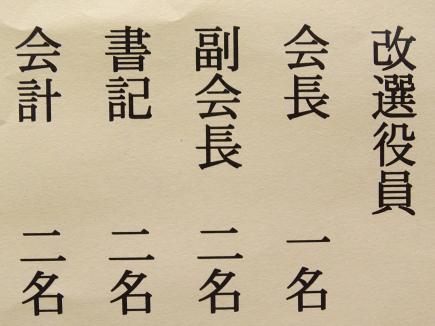 改選役員
会長 一名
副会長 二名
書記 二名
会計 二名